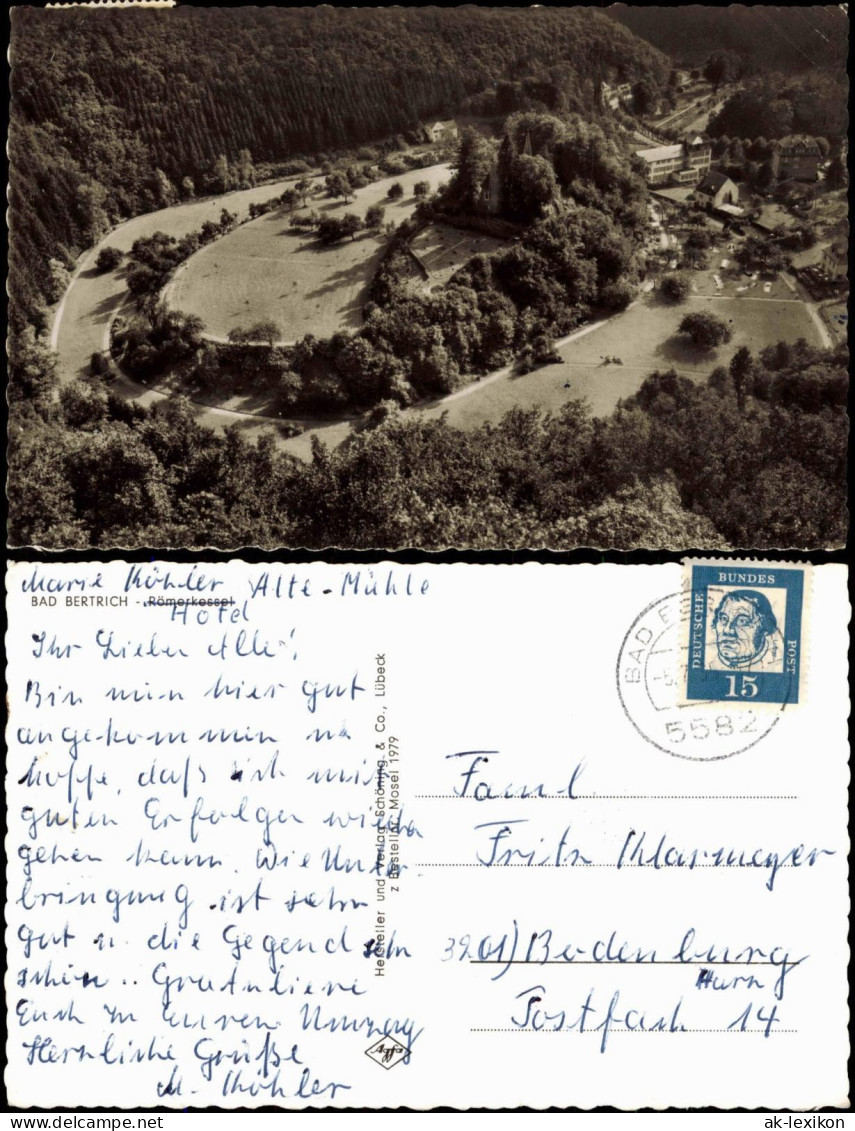 Marie Köhler Alte-Mühle
BAD BERTRICH - Römerkessel
Hotel
Ihr Lieben Alle!
Bin nun hier gut
angekommen u
hoffe, daß ich mit
guten Erfolgen wieder
gehen kann. Wie Unter
bringung ist sehr
gut u. die Gegend sehr
schön.. Gratuliere
Euch zu Eurem Umzug
Herzliche Grüße
M. Köhler
Hersteller und Verlag Schöning & Co., Lübeck
z Bestell-Nr. Mosel 1979
Agfa
DEUTSCHE
BUNDES
POST
15
BAD
5582
Famil.
Fritz Klarmeyer
3201) Bodenburg
Harz
Postfach 14
www.delcampe.net
ak-lexikon